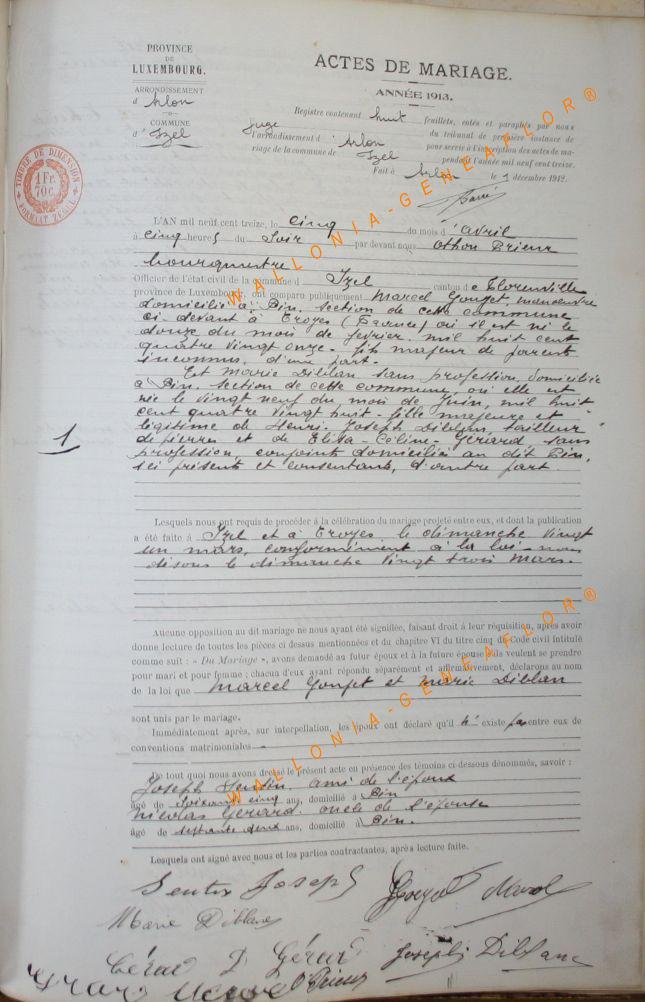 PROVINCE
DE
LUXEMBOURG.
ARRONDISSEMENT
d'Arlon
COMMUNE
d'Izel
TIMBRE DE DIMENSION
1 Fr.
70 c.
ACTES DE MARIAGE.
ANNÉE 1913.
Registre contenant huit feuillets, cotés et paraphés par nous
juge du tribunal de première instance de
l'arrondissement d'Arlon pour servir à l'inscription des actes de ma-
riage de la commune de Izel pendant l'année mil neuf cent treize.
Fait à Arlon le 1 décembre 1912.
L'AN mil neuf cent treize, le cinq du mois d'avril
à cinq heures du soir par devant nous Othon Prieur
bourgmestre
Officier de l'état civil de la commune d Izel canton de Florenville
province de Luxembourg, ont comparu publiquement Marcel manœuvre
domicilié à Pin, section de cette commune
ci-devant à Troyes (France) où il est né le
douze du mois de février mil huit cent
quatre vingt onze. fils majeur de parents
inconnus, d'une part.
Et Marie Diblan sans profession, domiciliée
à Pin, section de cette commune, où elle est
née le vingt neuf du mois de Juin, mil huit
cent quatre vingt huit - fille majeure et
légitime de Henri-Joseph Diblan, tailleur
de pierres et de Elisa-Céline Gérard, sans
profession, conjoints domiciliés au dit Pin,
ici présents et consentants, d'autre part.
1
Lesquels nous ont requis de procéder à la célébration du mariage projeté entre eux, et dont la publication
a été faite à Izel et à Troyes le dimanche vingt
un mars, conformément à la loi - nous
disons le dimanche vingt trois mars.
Aucune opposition au dit mariage ne nous ayant été signifiée, faisant droit à leur réquisition, après avoir
donné lecture de toutes les pièces ci dessus mentionnées et du chapitre VI du titre cinq du Code civil intitulé
comme suit : « Du Mariage », avons demandé au futur époux et à la future épouse s'ils veulent se prendre
pour mari et pour femme ; chacun d'eux ayant répondu séparément et affirmativement, déclarons au nom
de la loi que Marcel et Marie Diblan
sont unis par le mariage.
Immédiatement après, sur interpellation, les époux ont déclaré qu'il n'existe pas entre eux de
conventions matrimoniales
De tout quoi nous avons dressé le présent acte en présence des témoins ci-dessous dénommés, savoir :
Joseph ami de l'époux
âgé de soixante cinq ans, domicilié à Pin
Nicolas Gérard oncle de l'épouse
âgé de septante deux ans, domicilié à Pin.
Lesquels ont signé avec nous et les parties contractantes, après lecture faite.
Joseph
Marie Diblan
Gérard Joseph Diblanc
O Prieur
WALLONIA-GENEAFLOR®
WALLONIA-GENEAFLOR®